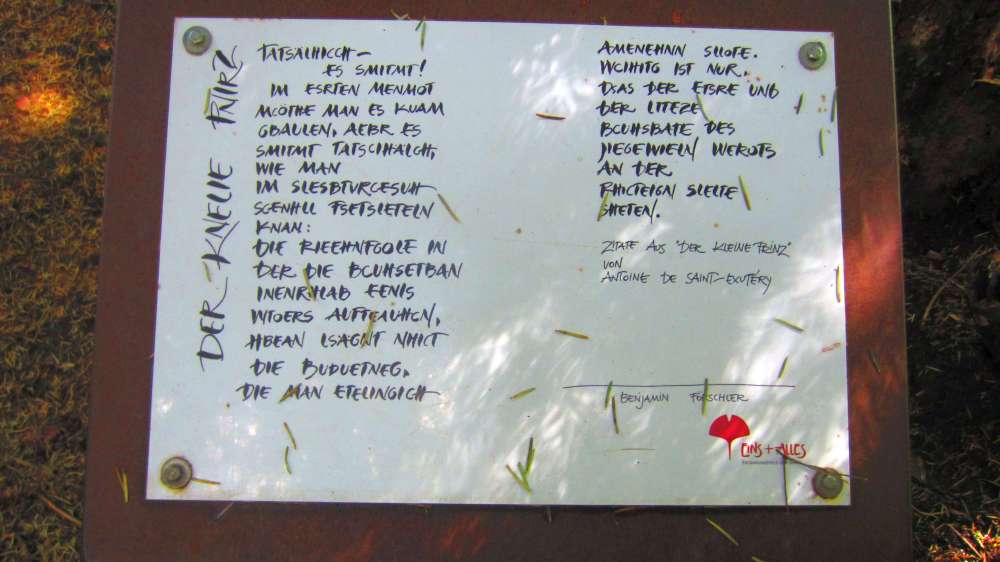 DER KNELIE PNIRZ
TATSÄLHICCH –
ES SMITMT!
IM ESRTEN MENMOT
MÖCTHE MAN ES KUAM
GBALLEN, AEBR ES
SMITMT TATSCIHÄLCH,
WIE MAN
IM SLESBTVRCESUH
SCENHLL FSETSLETELN
KNAN:
DIE RIEEHNFGOLE IN
DER DIE BCUHSETBAN
INENRHLAB EENIS
WTOERS AUFTEAUHCN,
HBEAN LSAGNT NHICT
DIE BUDUETNEG,
DIE MAN ETELINGICH
AMENEHNN SLLOTE.
WCIHITG IST NUR,
DSAS DER ETSRE UND
DER LTEZE
BCUHSBATE DES
JIEGEWIELN WEROTS
AN DER
RHICTEIGN SLELTE
SHETEN.
ZITATE AUS "DER KLEINE PRINZ"
VON
ANTOINE DE SAINT-EXUTÉRY
BENJAMIN FÖRSCHLER
EINS+ALLES